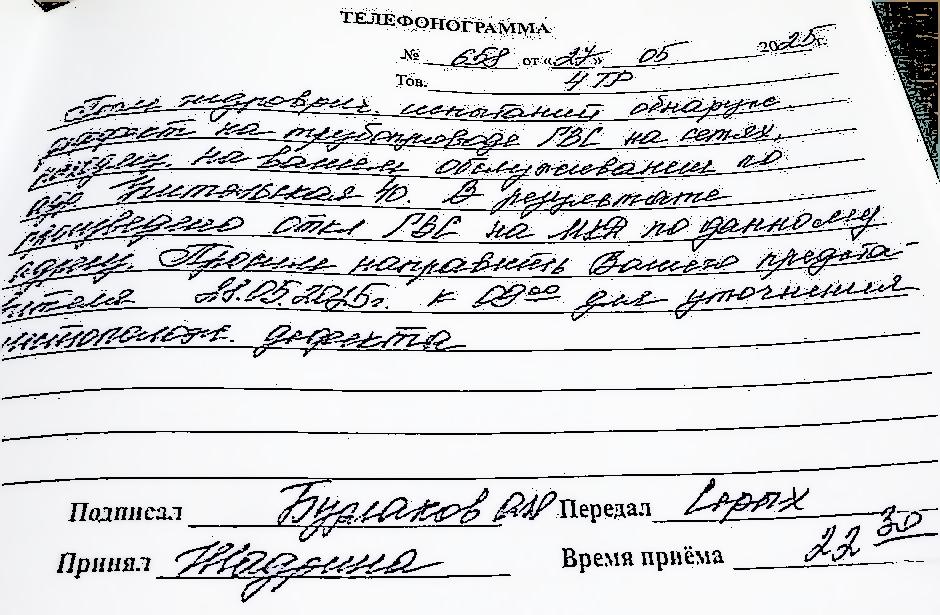 ТЕЛЕФОНОГРАММА
№ 658 от «27» 05 2025г.
Тов. ЧТР
При гидровлич. испытаний обнаруже
дефект на трубопроводе ГВС на сетях,
на вашем обслуживании по
адр Учительская 40. В результате
произведено откл ГВС на МКД по данному
адресу. Просим направить Вашего предста-
вителя 28.05.2025г. к 09⁰⁰ для уточнения
местополож. дефекта
Подписал Бурлаков Передал
Принял Время приёма 22³⁰